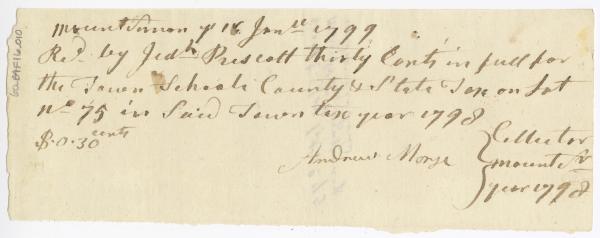 Mount Vernon ye 16 Janre 1799
Recd by Jedh Prescott thirty Cents in full for
the Town Schools County & State Tax on Lot
No 75 in Said Town tax year 1798
$.0.30 cents
Andrew Morse
Collector
Mount Vr
year 1798
62.AF16.010